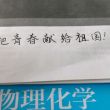 把青春献给祖国!
物理化学